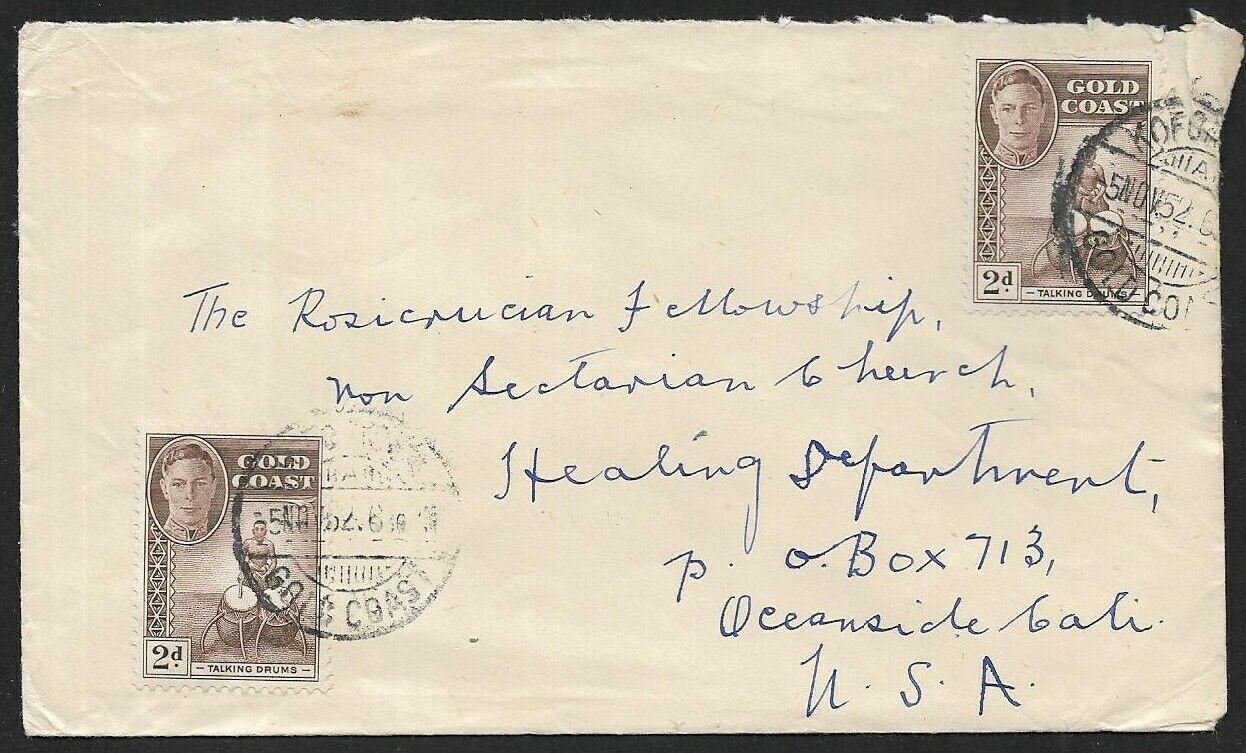 GOLD
COAST
2d
TALKING DRUMS
5NOV52.6
GOLD COA
The Rosicrucian Fellowship,
non Sectarian Church,
Healing Department,
p. o. Box 713,
Oceanside Cali.
U. S. A.
GOLD
COAST
2d
TALKING DRUMS
5NOV52.630
GOLD COAST